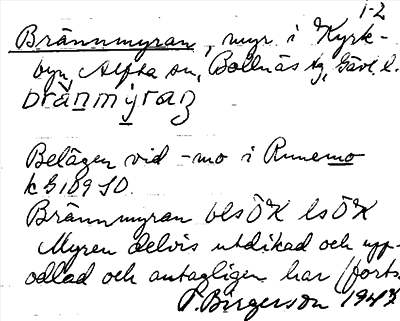 1-2
Brännmyran, myr i Kyrk-
byn, Alfta sn, Bollnäs tg, Gävl. l.
brànmỳraɳ
Belägen vid -mo i Runemo
k G 109 SO.
Brännmyran bls ÖK ls ÖK
Myren delvis utdikad och upp-
odlad och antagligen har (forts.
P. Birgerson 1947